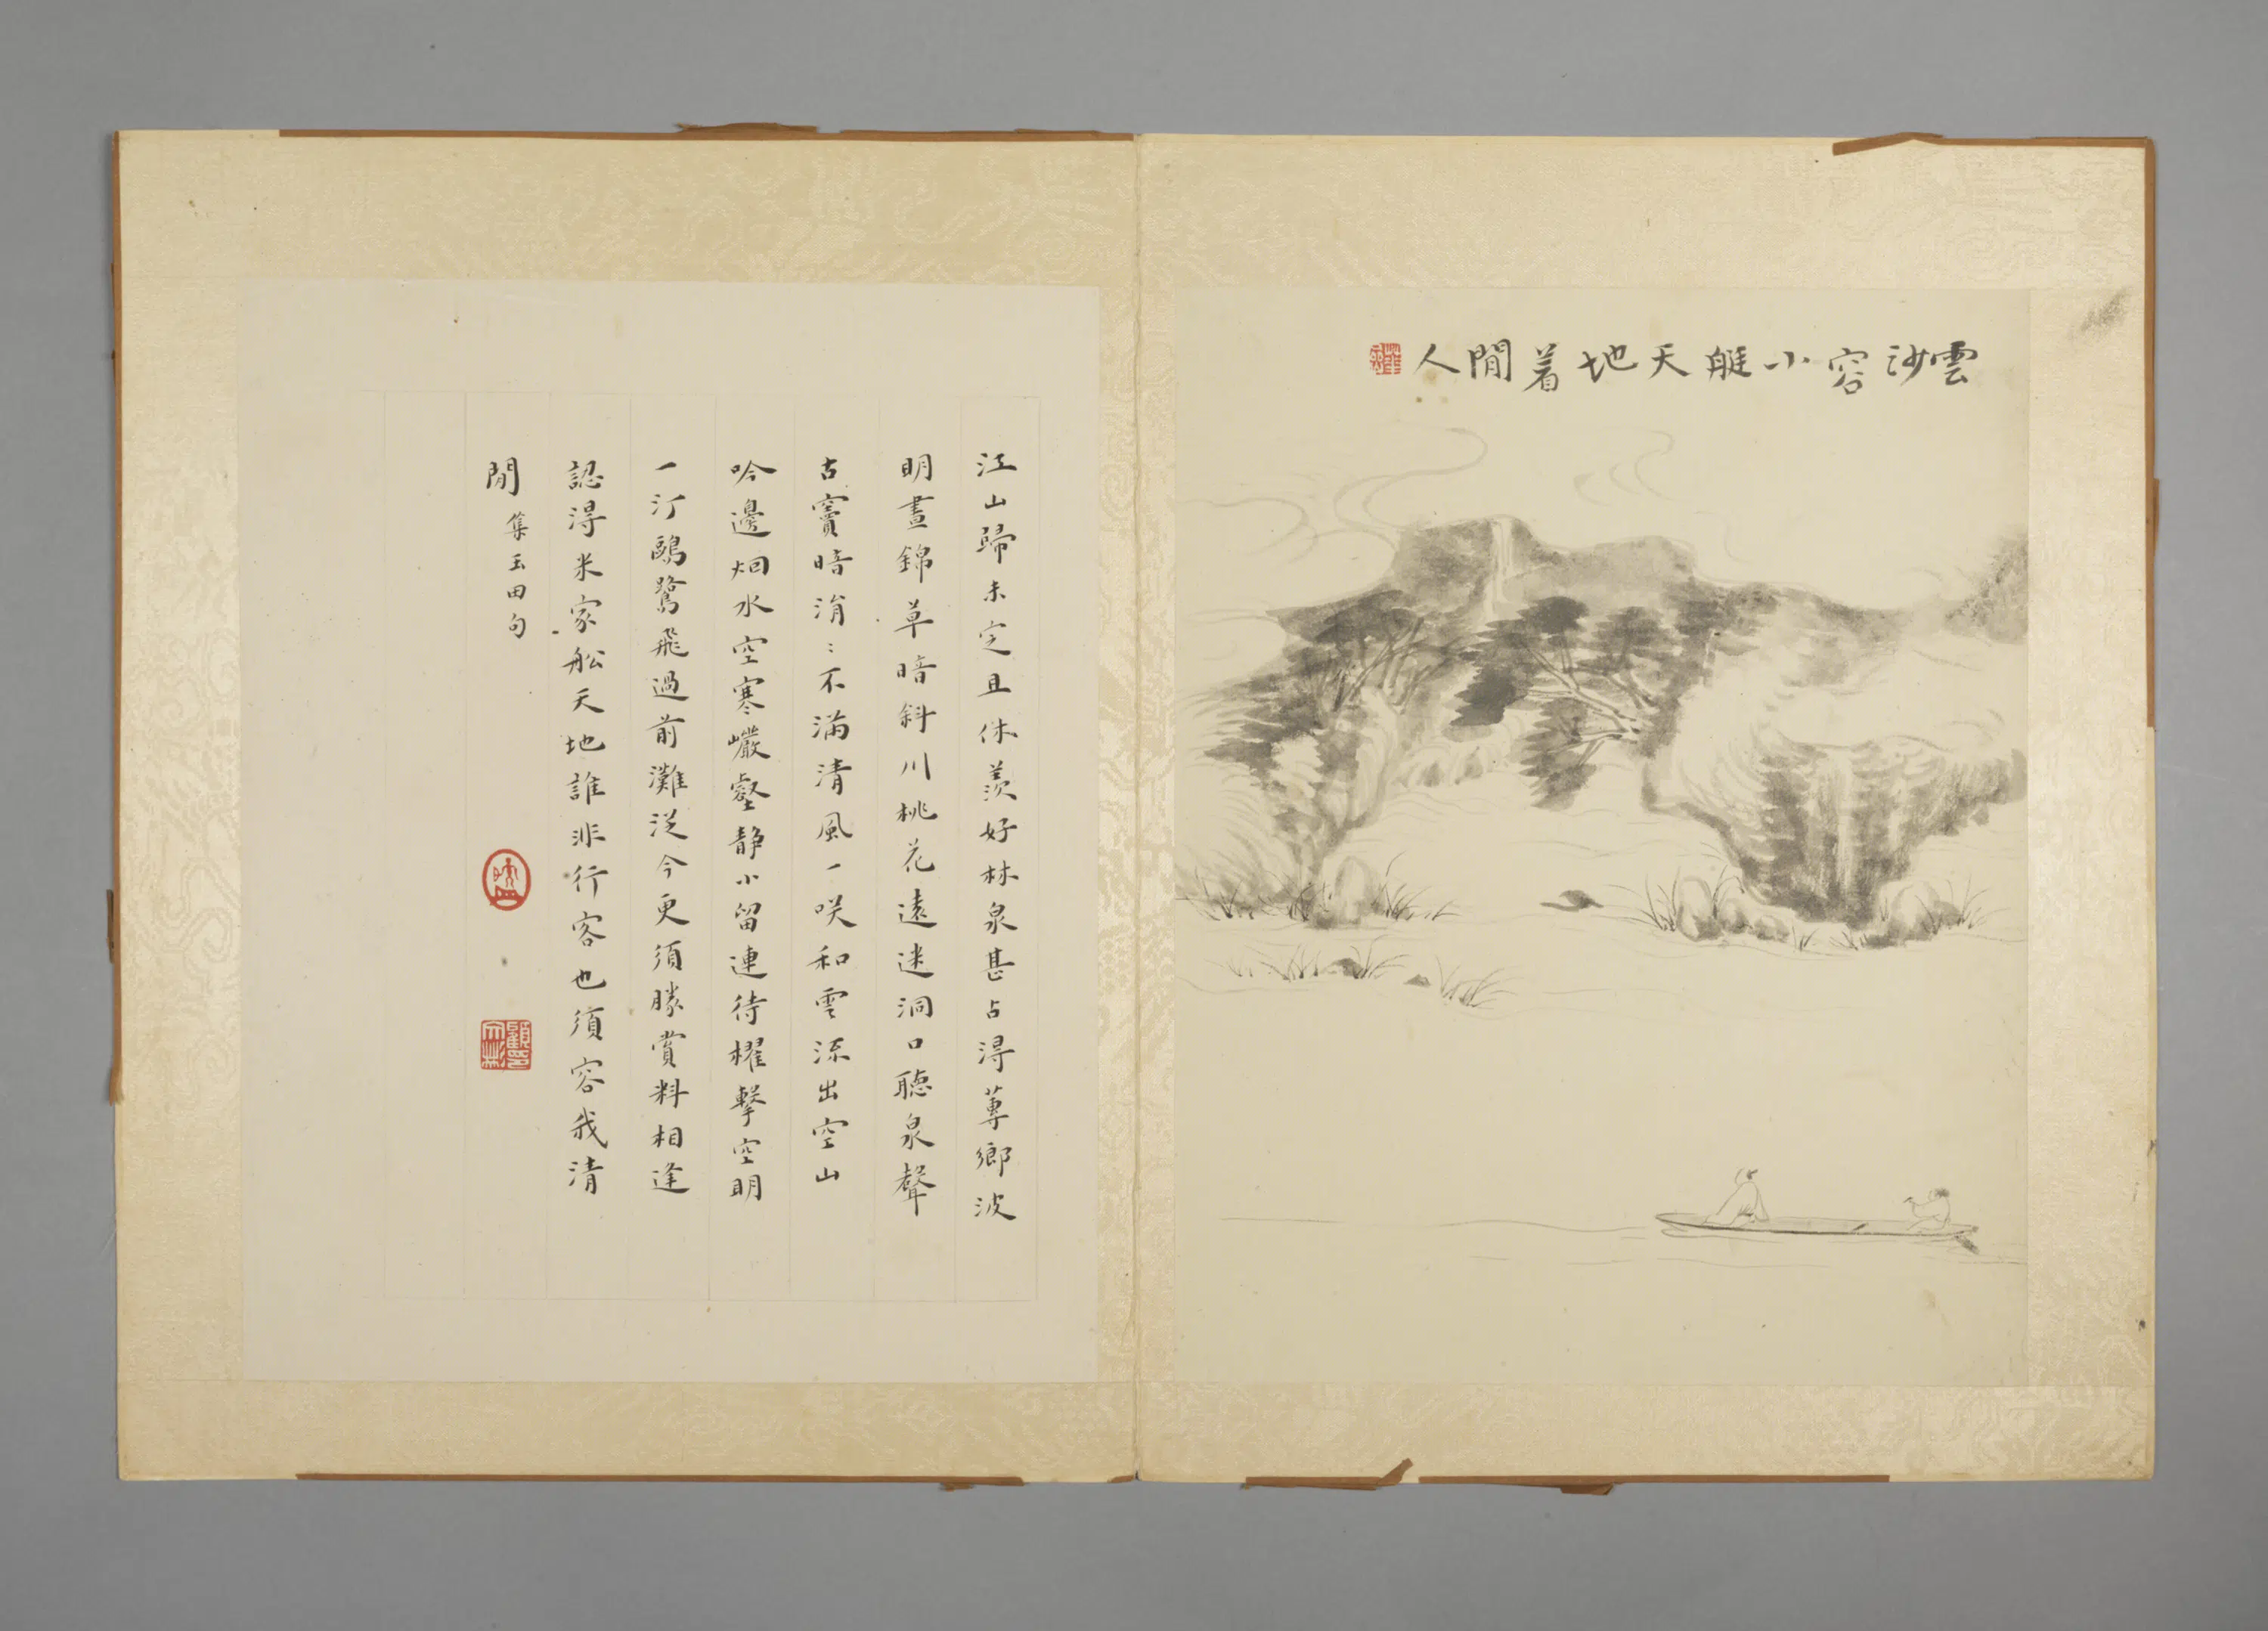 雲沙容小艇天地着閒人
江山歸未定且休羨好林泉甚占得蓴鄉波
明晝錦草暗斜川桃花遠迷洞口聽泉聲
古竇暗涓〻不滿清風一咲和雲流出空山
吟邊烟水空寒巖壑静小留連待櫂擊空明
一汀鷗鷺飛過前灘從今更須勝賞料相逢
認得米家船天地誰非行客也須容我清
閒
集玉田句